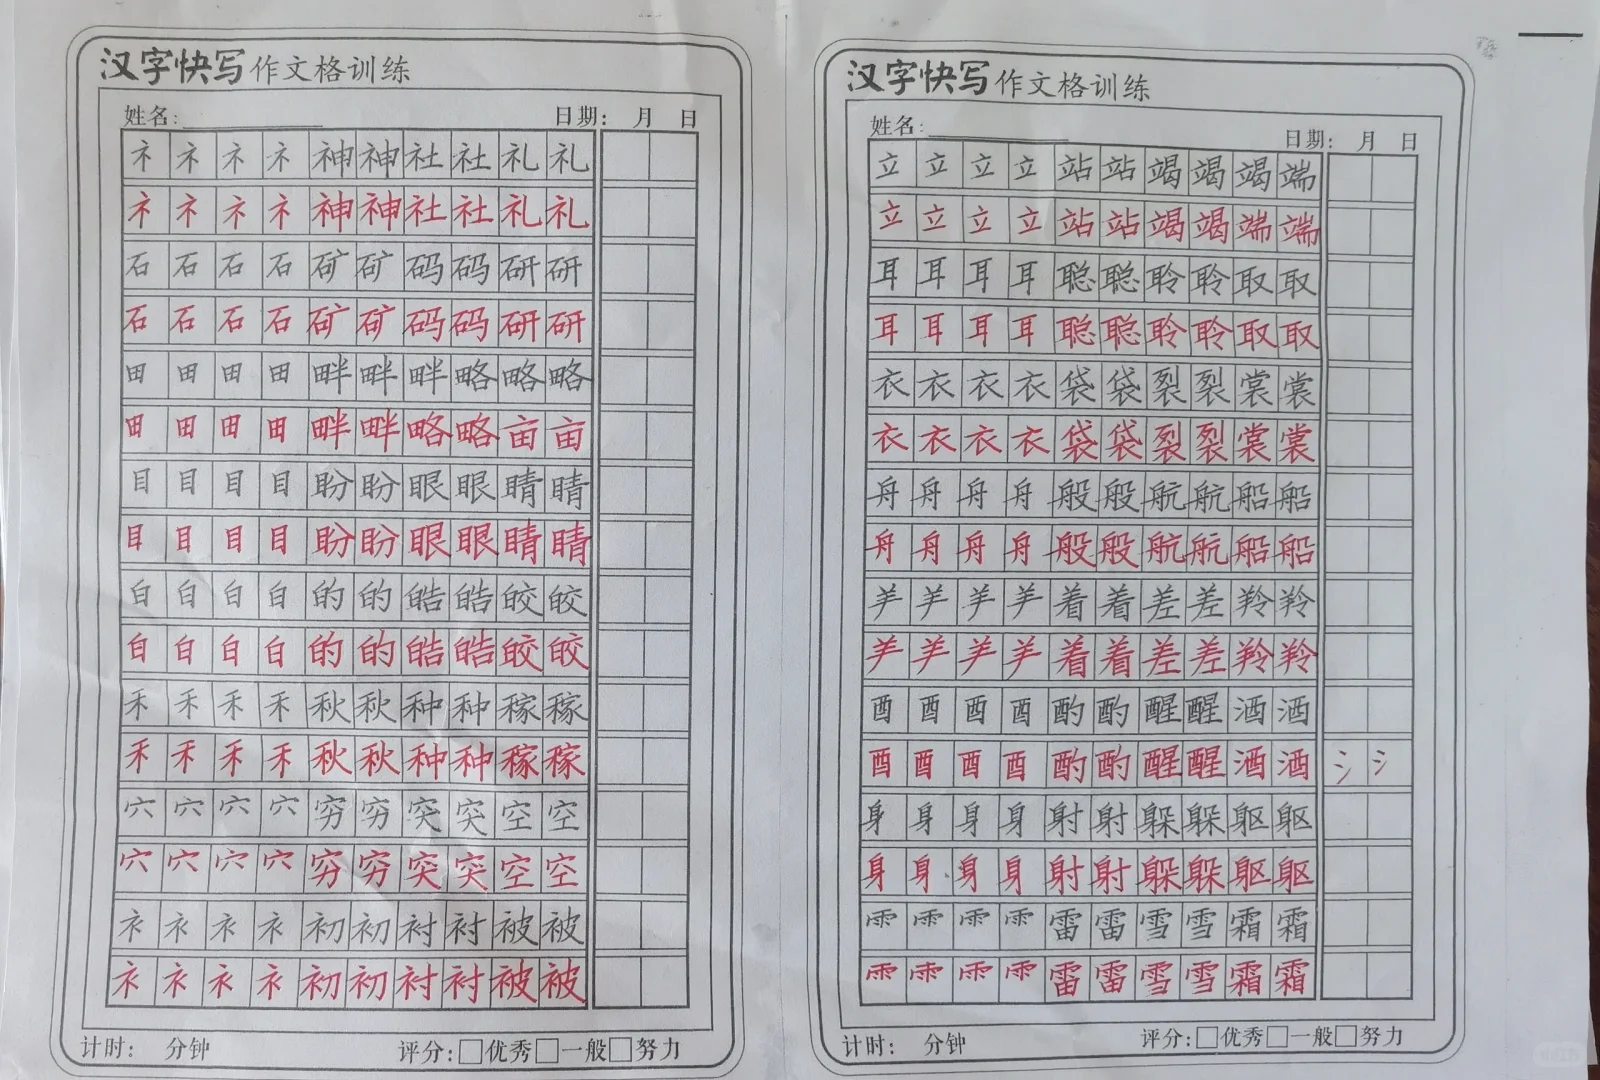 汉字快写作文格训练
姓名: 日期: 月 日
礻礻礻礻神神社社礼礼
礻礻礻礻神神社社礼礼
石石石石矿矿码码研研
石石石石矿矿码码研研
田田田田畔畔畔略略略
田田田田畔畔略略亩亩
目目目目盼盼眼眼睛睛
目目目目盼盼眼眼睛睛
白白白白的的皓皓皎皎
白白白白的的皓皓皎皎
禾禾禾禾秋秋种种稼稼
禾禾禾禾秋秋种种稼稼
穴穴穴穴穷穷突突空空
穴穴穴穴穷穷突突空空
衤衤衤衤初初衬衬被被
衤衤衤衤初初衬衬被被
计时: 分钟 评分:□优秀□一般□努力
汉字快写作文格训练
姓名: 日期: 月 日
立立立立站站竭竭竭端
立立立立站站竭竭端端
耳耳耳耳聪聪聆聆取取
耳耳耳耳聪聪聆聆取取
衣衣衣衣袋袋裂裂裳裳
衣衣衣衣袋袋裂裂裳裳
舟舟舟舟般般航航船船
舟舟舟舟般般航航船船
羊羊羊羊着着差差羚羚
羊羊羊羊着着差差羚羚
酉酉酉酉酌酌醒醒酒酒
酉酉酉酉酌酌醒醒酒酒氵氵
身身身身射射躲躲躯躯
身身身身射射躲躲躯躯
⻗⻗⻗⻗雷雷雪雪霜霜
⻗⻗⻗⻗雷雷雪雪霜霜
计时: 分钟 评分:□优秀□一般□努力